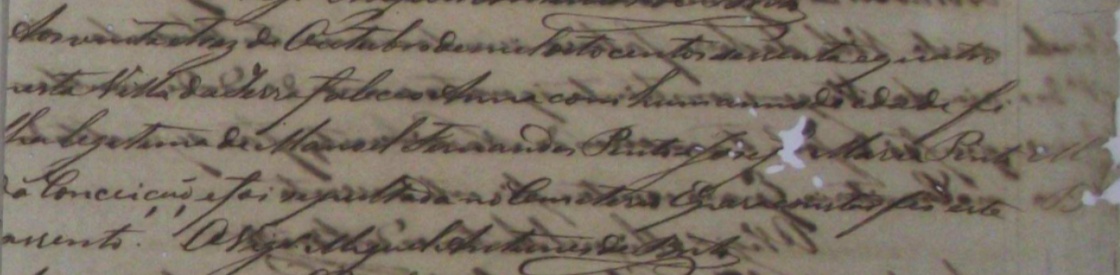 Aos vinta etres de Outubro de mil oito centos sesenta e quatro
nesta Villa da Serra faleceo Anna com hum anno de edade fi
lha legitima de Manoel Fernandes Pinto Maria Pinto
da Conceição, e foi sepultada no Cemeterio E para constar fis este
assento. O Vigr.º Miguel Antunes de Brito